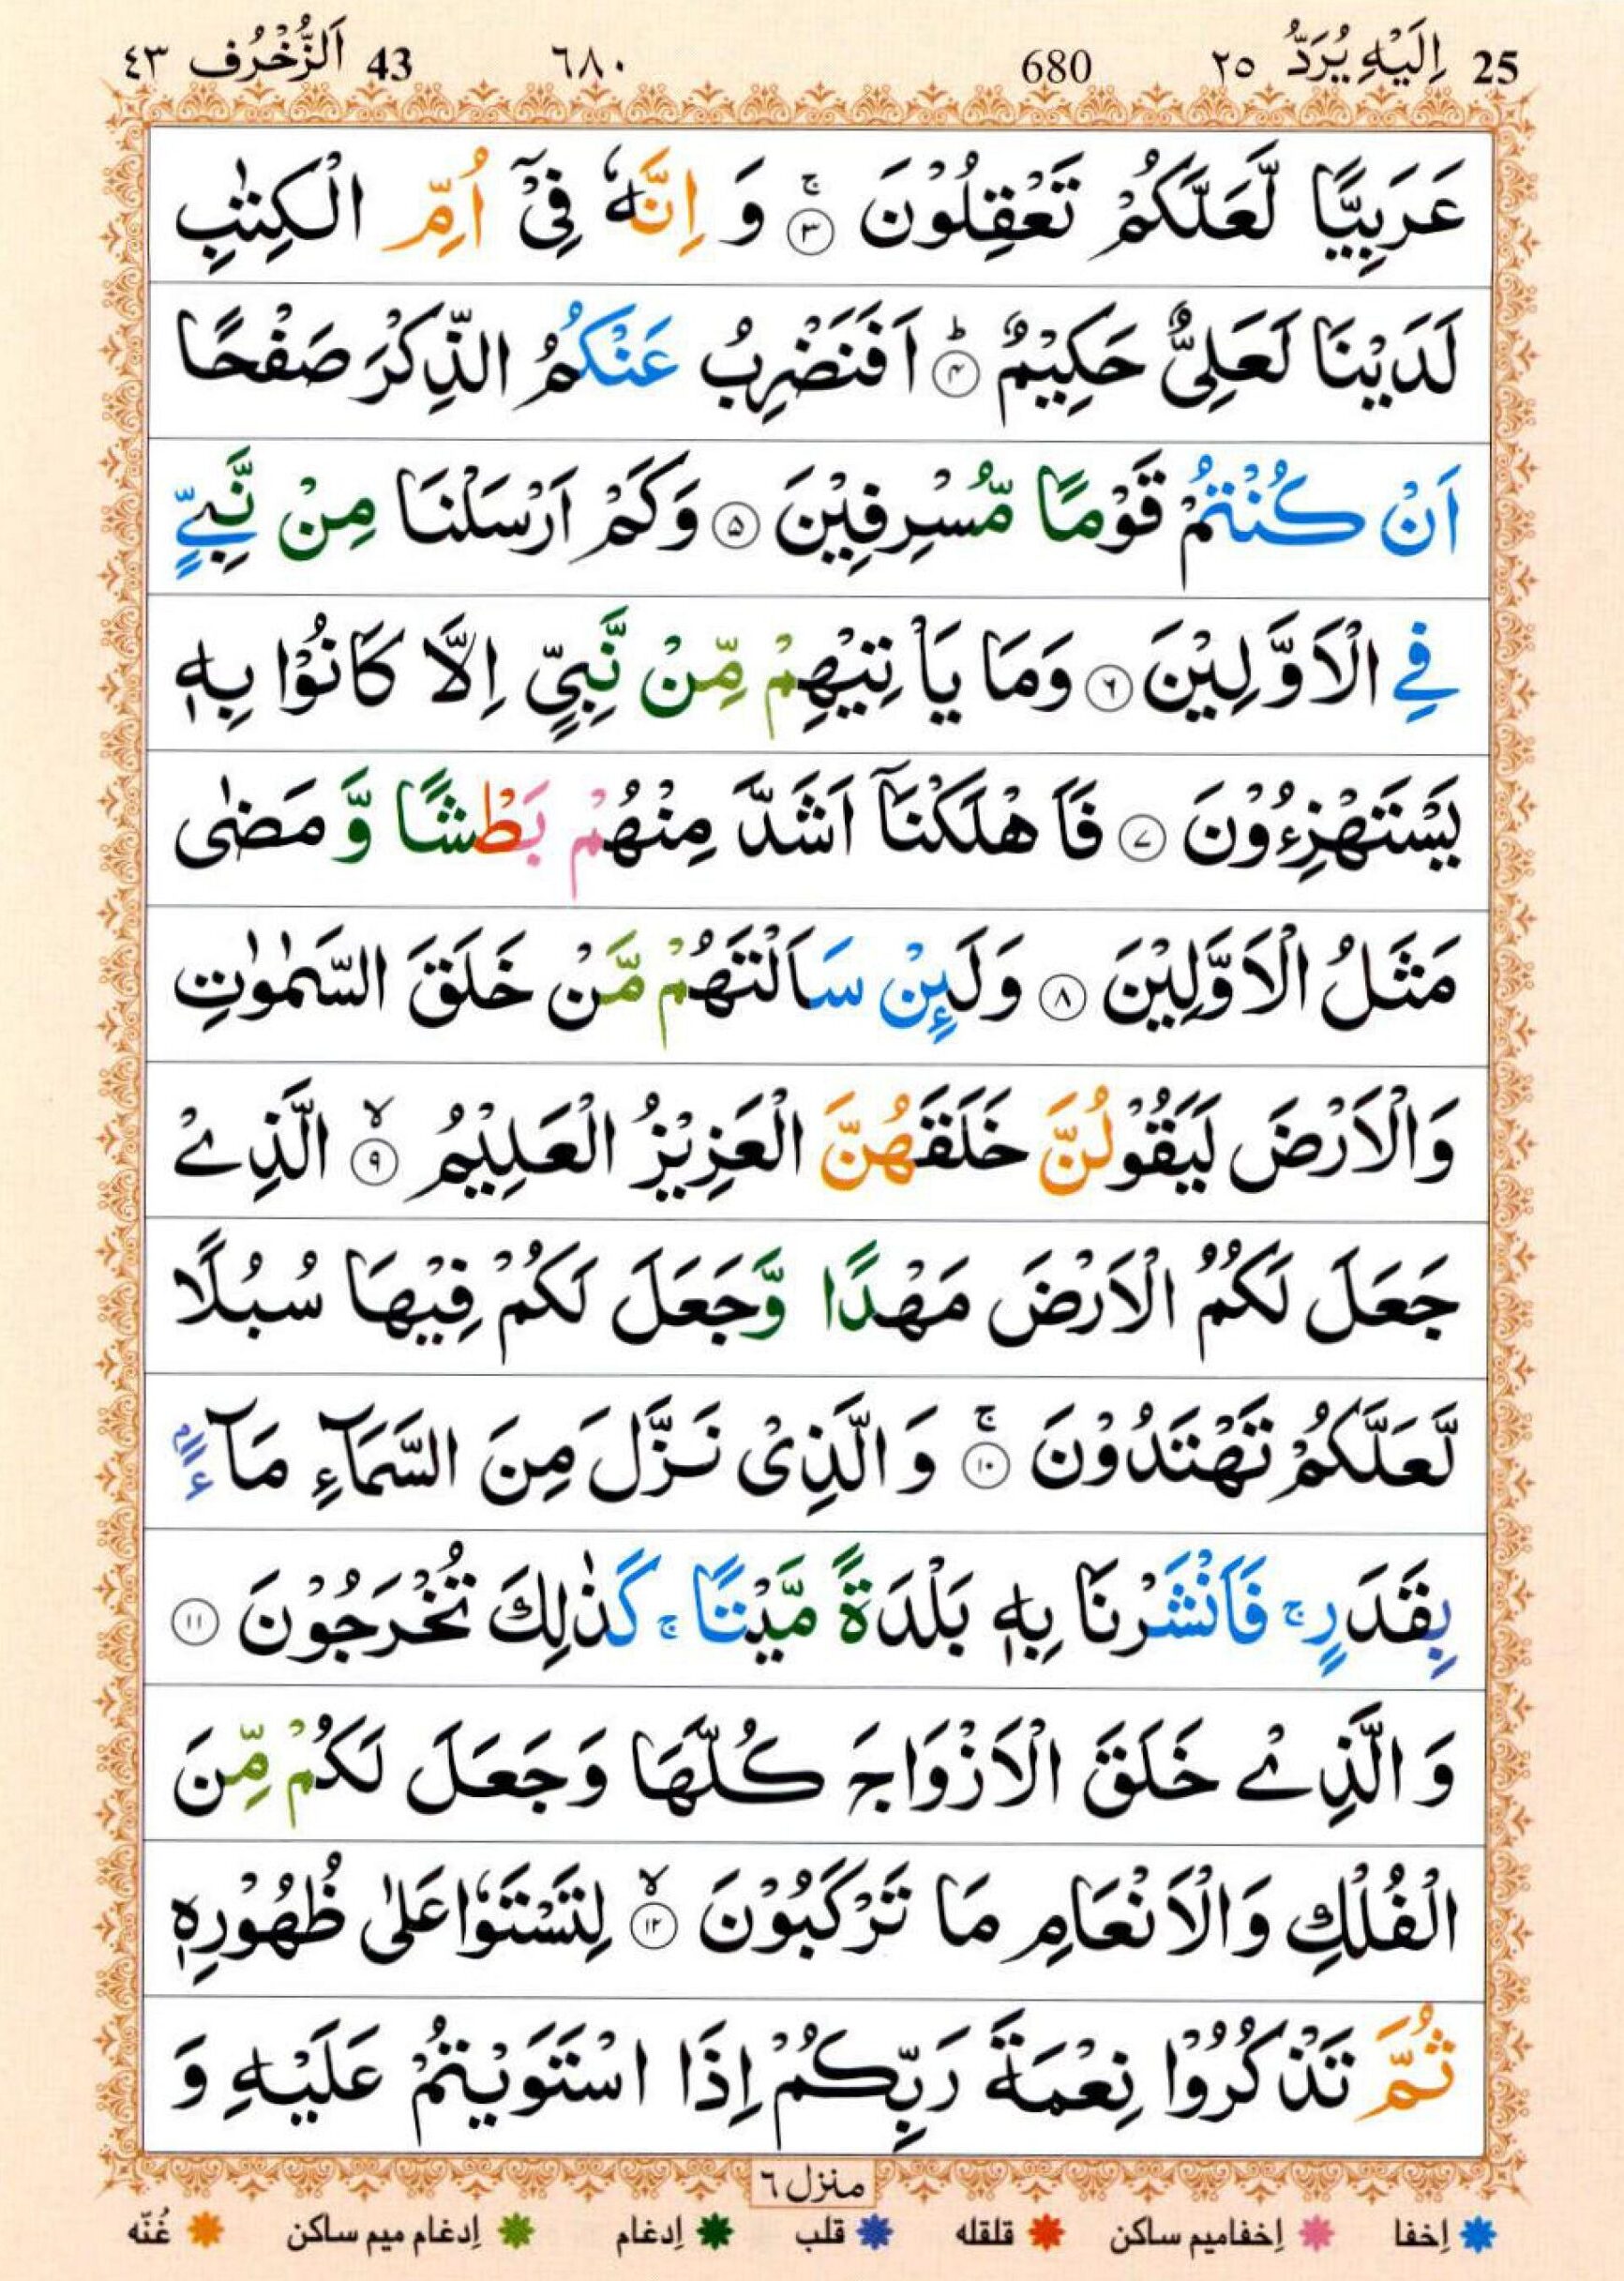 25 اِلَيْهِ يُرَدُّ ٢٥ 680 ٦٨٠ 43 اَلزُّخْرُف ٤٣
عَرَبِيًّا لَّعَلَّكُمْ تَعْقِلُوْنَ ۚ‏ ﴿۳﴾ وَ اِنَّهٗ فِىْۤ اُمِّ الْكِتٰبِ
لَدَيْنَا لَعَلِىٌّ حَكِيْمٌ ؕ‏ ﴿۴﴾ اَفَنَضْرِبُ عَنْكُمُ الذِّكْرَ صَفْحًا
اَنْ كُنْتُمْ قَوْمًا مُّسْرِفِيْنَ ﴿۵﴾ وَكَمْ اَرْسَلْنَا مِنْ نَّبِىٍّ
فِى الْاَوَّلِيْنَ ﴿۶﴾ وَمَا يَاْتِيْهِمْ مِّنْ نَّبِىٍّ اِلَّا كَانُوْا بِهٖ
يَسْتَهْزِءُوْنَ ﴿۷﴾ فَاَهْلَكْنَاۤ اَشَدَّ مِنْهُمْ بَطْشًا وَّ مَضٰى
مَثَلُ الْاَوَّلِيْنَ ﴿۸﴾ وَلَئِنْ سَاَلْتَهُمْ مَّنْ خَلَقَ السَّمٰوٰتِ
وَالْاَرْضَ لَيَقُوْلُنَّ خَلَقَهُنَّ الْعَزِيْزُ الْعَلِيْمُ ۙ‏ ﴿۹﴾ الَّذِىْ
جَعَلَ لَكُمُ الْاَرْضَ مَهْدًا وَّجَعَلَ لَكُمْ فِيْهَا سُبُلًا
لَّعَلَّكُمْ تَهْتَدُوْنَ ۚ‏ ﴿۱۰﴾ وَ الَّذِىْ نَزَّلَ مِنَ السَّمَآءِ مَآءًۢ
بِقَدَرٍ ۚ فَاَنْشَرْنَا بِهٖ بَلْدَةً مَّيْتًا ۚ كَذٰلِكَ تُخْرَجُوْنَ ﴿۱۱﴾
وَ الَّذِىْ خَلَقَ الْاَزْوَاجَ كُلَّهَا وَجَعَلَ لَكُمْ مِّنَ
الْفُلْكِ وَالْاَنْعَامِ مَا تَرْكَبُوْنَ ۙ‏ ﴿۱۲﴾ لِتَسْتَوٗا عَلٰى ظُهُوْرِهٖ
ثُمَّ تَذْكُرُوْا نِعْمَةَ رَبِّكُمْ اِذَا اسْتَوَيْتُمْ عَلَيْهِ وَ
منزل ٦
اِخفا اِخفامیم ساکن قلقله قلب اِدغام اِدغام میم ساکن غُنّه